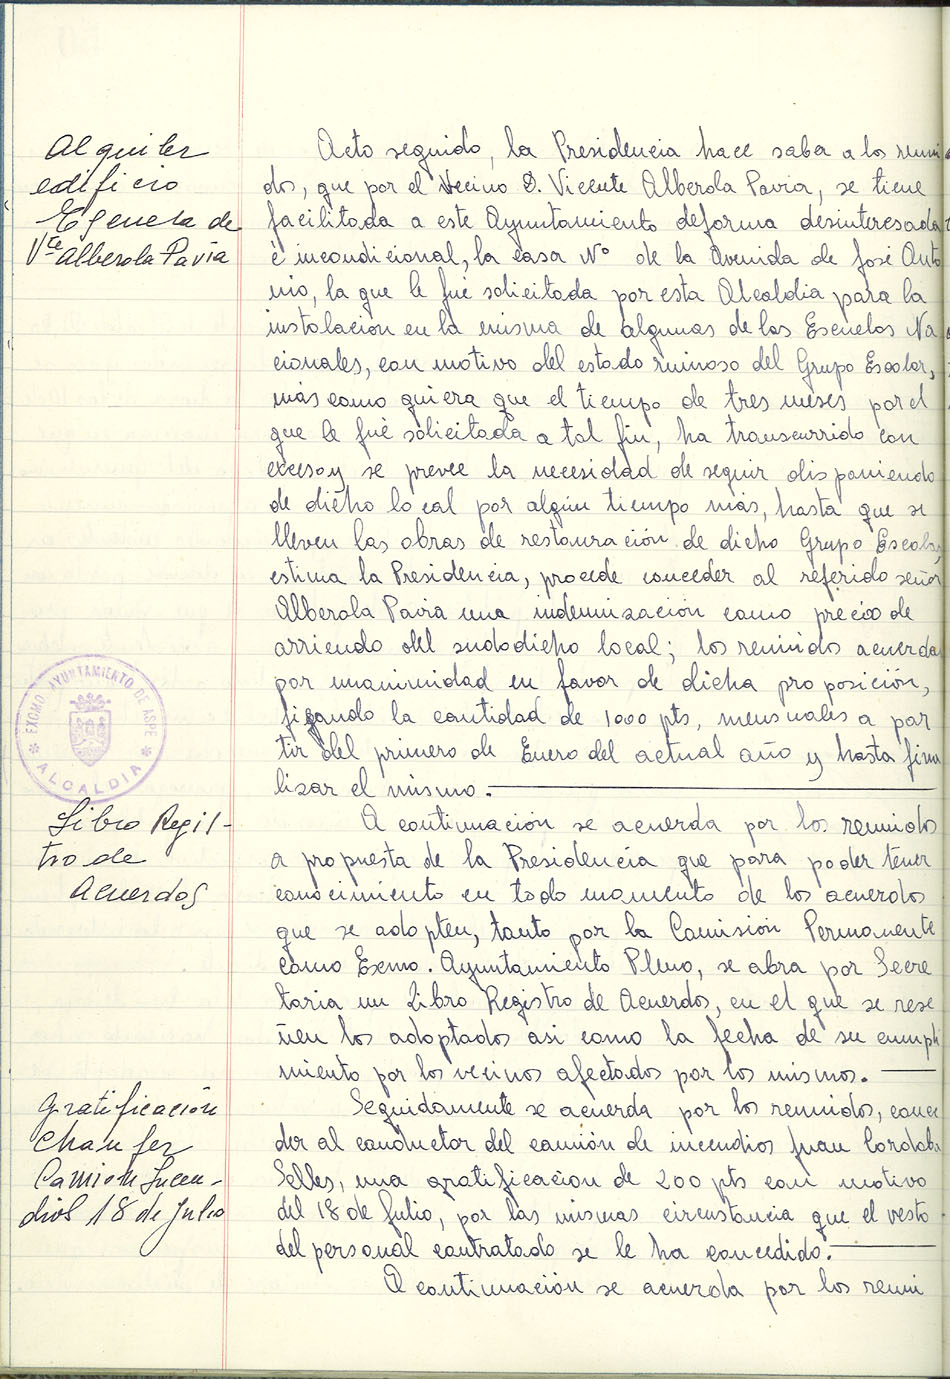 Alquiler
edificio
Escuela de
Vte Alberola Pavía
Acto seguido, la Presidencia hace saber a los reuni
dos, que por el Vecino D. Vicente Alberola Pavia, se tiene
facilitada a este Ayuntamiento deforma desinteresada
é incondicional, la casa Nº de la Avenida de José Anto
nio, la que le fué solicitada por esta Alcaldia para la
instalación en la misma de algunas de las Escuelas Na
cionales, con motivo del estado ruinoso del Grupo Escolar,
más como quiera que el tiempo de tres meses por el
que le fué solicitada a tal fin, ha transcurrido con
exceso y se prevee la necesidad de seguir disponiendo
de dicho local por algún tiempo más, hasta que se
lleven las obras de restauración de dicho Grupo Escolar,
estima la Presidencia, procede conceder al referido señor
Alberola Pavia una indemnización como precio de
arriendo del susodicho local; los reunidos acuerdan
por unanimidad en favor de dicha proposición,
fijando la cantidad de 1000 pts, mensuales a par
tir del primero de Enero del actual año y hasta fina
lizar el mismo.
EXCMO AYUNTAMIENTO DE ASPE
ALCALDIA
Libro Regis-
tro de
Acuerdos
A continuación se acuerda por los reunidos
a propuesta de la Presidencia que para poder tener
conocimiento en todo momento de los acuerdos
que se adopten, tanto por la Comisión Permanente
como Exmo. Ayuntamiento Pleno, se abra por Secre
taria un Libro Registro de Acuerdos, en el que se rese
ñen los adoptados asi como la fecha de su cumpli
miento por los vecinos afectados por los mismos.
Gratificación
Chaufer
Camión Incen-
dios 18 de Julio
Seguidamente se acuerda por los reunidos, conce
der al conductor del camión de incendios Juan Cordoba
Selles, una gratificación de 200 pts con motivo
del 18 de Julio, por las mismas circunstancia que el resto
del personal contratado se le ha concedido.
A continuación se acuerda por los reuni